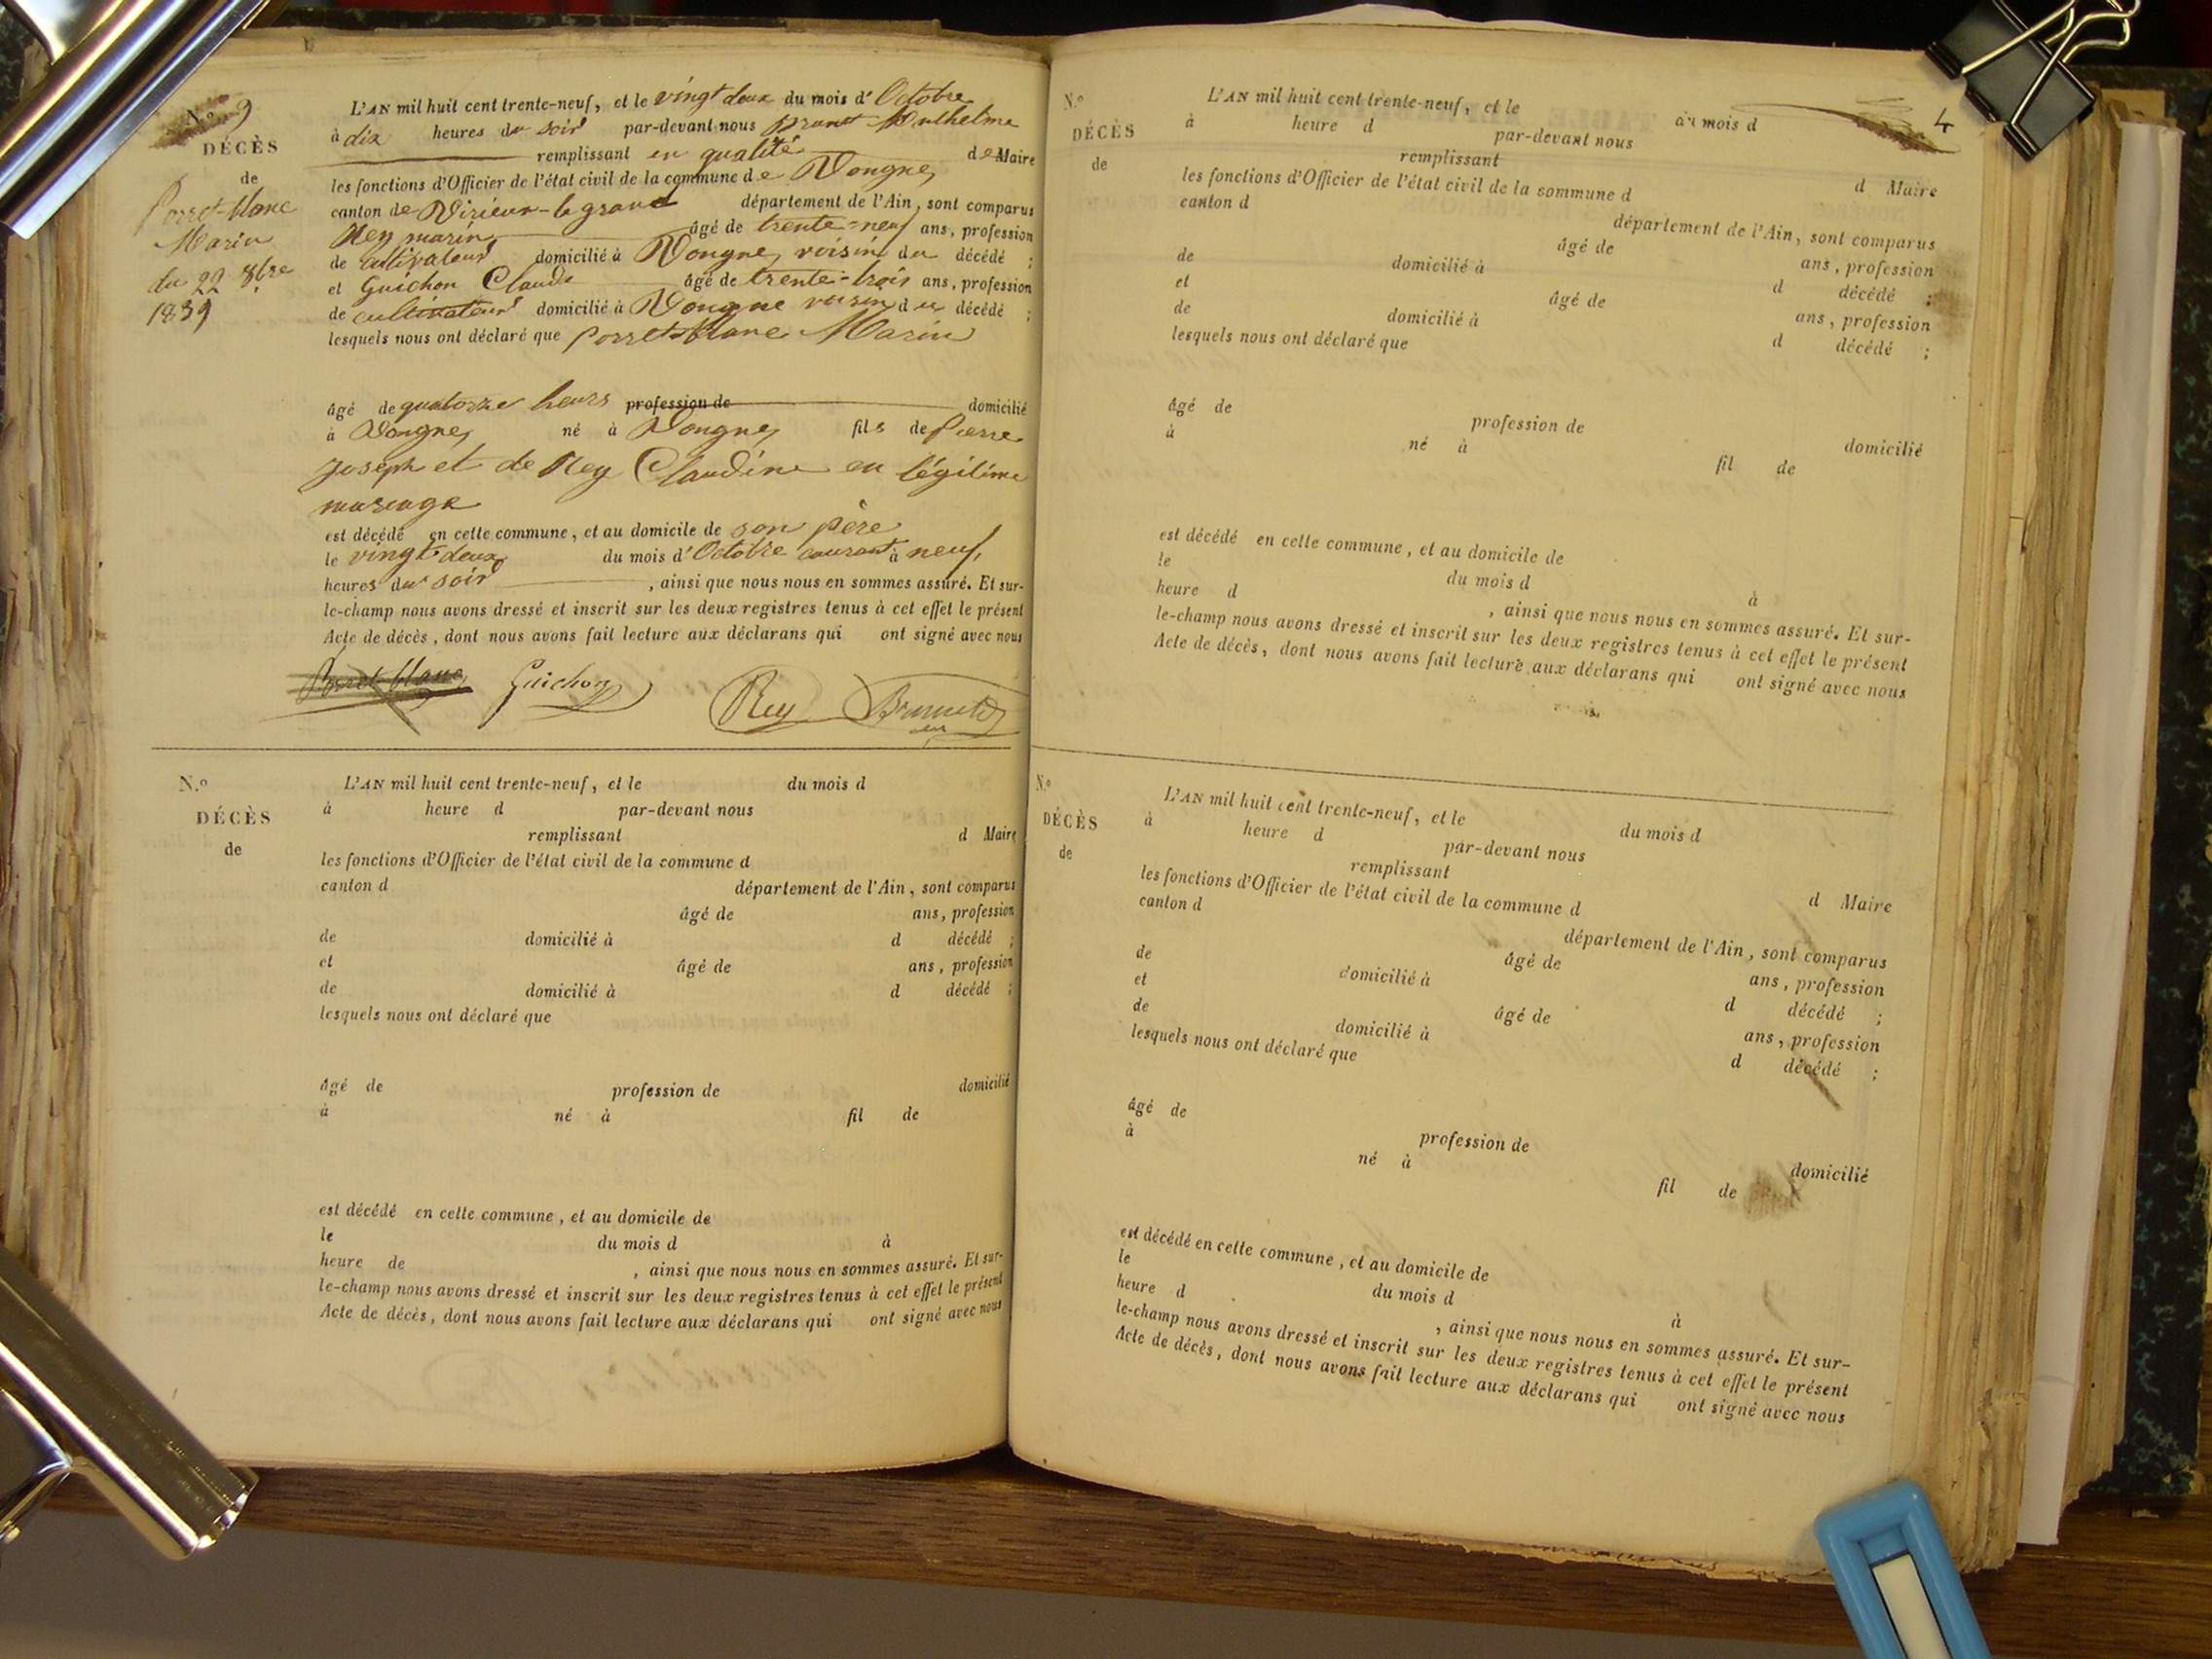 N.o 9
DÉCÈS
de
Porret-blanc
Marin
du 22 8bre
1839
L'AN mil huit cent trente-neuf, et le vingt deux du mois d'Octobre
à dix heures du soir par-devant nous Brunet Anthelme
remplissant en qualité de Maire
les fonctions d'Officier de l'état civil de la commune de Vongnes
canton de Virieux-le grand département de l'Ain, sont comparus
Rey marin âgé de trente-neuf ans, profession
de cultivateur domicilié à Vongnes voisin du décédé ;
et Guichon Claude âgé de trente-trois ans, profession
de cultivateur domicilié à Vongne voisin du décédé ;
lesquels nous ont déclaré que Porret-blanc Marin
âgé de quatorze heurs profession de domicilié
à Vongnes né à Vongnes fils de Pierre
Joseph et de Rey Claudine en légitime
mariage
est décédé en cette commune, et au domicile de son père
le vingt deux du mois d'Octobre courant à neuf
heures du soir , ainsi que nous nous en sommes assuré. Et sur-
le-champ nous avons dressé et inscrit sur les deux registres tenus à cet effet le présent
Acte de décès, dont nous avons fait lecture aux déclarans qui ont signé avec nous
Porret blanc Guichon Rey Brunet
N.o
DÉCÈS
de
L'AN mil huit cent trente-neuf, et le du mois d
à heure d par-devant nous
remplissant d Maire
les fonctions d'Officier de l'état civil de la commune d
canton d département de l'Ain, sont comparus
âgé de ans, profession
de domicilié à d décédé ;
et âgé de ans, profession
de domicilié à d décédé ;
lesquels nous ont déclaré que
âgé de profession de domicilié
à né à fil de
est décédé en cette commune, et au domicile de
le du mois d à
heure de , ainsi que nous nous en sommes assuré. Et sur-
le-champ nous avons dressé et inscrit sur les deux registres tenus à cet effet le présent
Acte de décès, dont nous avons fait lecture aux déclarans qui ont signé avec nous
4
N.o
DÉCÈS
de
L'AN mil huit cent trente-neuf, et le du mois d
à heure d par-devant nous
remplissant d Maire
les fonctions d'Officier de l'état civil de la commune d
canton d département de l'Ain, sont comparus
âgé de ans, profession
de domicilié à d décédé ;
et âgé de ans, profession
de domicilié à d décédé ;
lesquels nous ont déclaré que
âgé de profession de domicilié
à né à fil de
est décédé en cette commune, et au domicile de
le du mois d à
heure d , ainsi que nous nous en sommes assuré. Et sur-
le-champ nous avons dressé et inscrit sur les deux registres tenus à cet effet le présent
Acte de décès, dont nous avons fait lecture aux déclarans qui ont signé avec nous
N.o
DÉCÈS
de
L'AN mil huit cent trente-neuf, et le du mois d
à heure d par-devant nous
remplissant d Maire
les fonctions d'Officier de l'état civil de la commune d
canton d département de l'Ain, sont comparus
âgé de ans, profession
de domicilié à d décédé ;
et âgé de ans, profession
de domicilié à d décédé ;
lesquels nous ont déclaré que
âgé de profession de domicilié
à né à fil de
est décédé en cette commune, et au domicile de
le du mois d à
heure d , ainsi que nous nous en sommes assuré. Et sur-
le-champ nous avons dressé et inscrit sur les deux registres tenus à cet effet le présent
Acte de décès, dont nous avons fait lecture aux déclarans qui ont signé avec nous